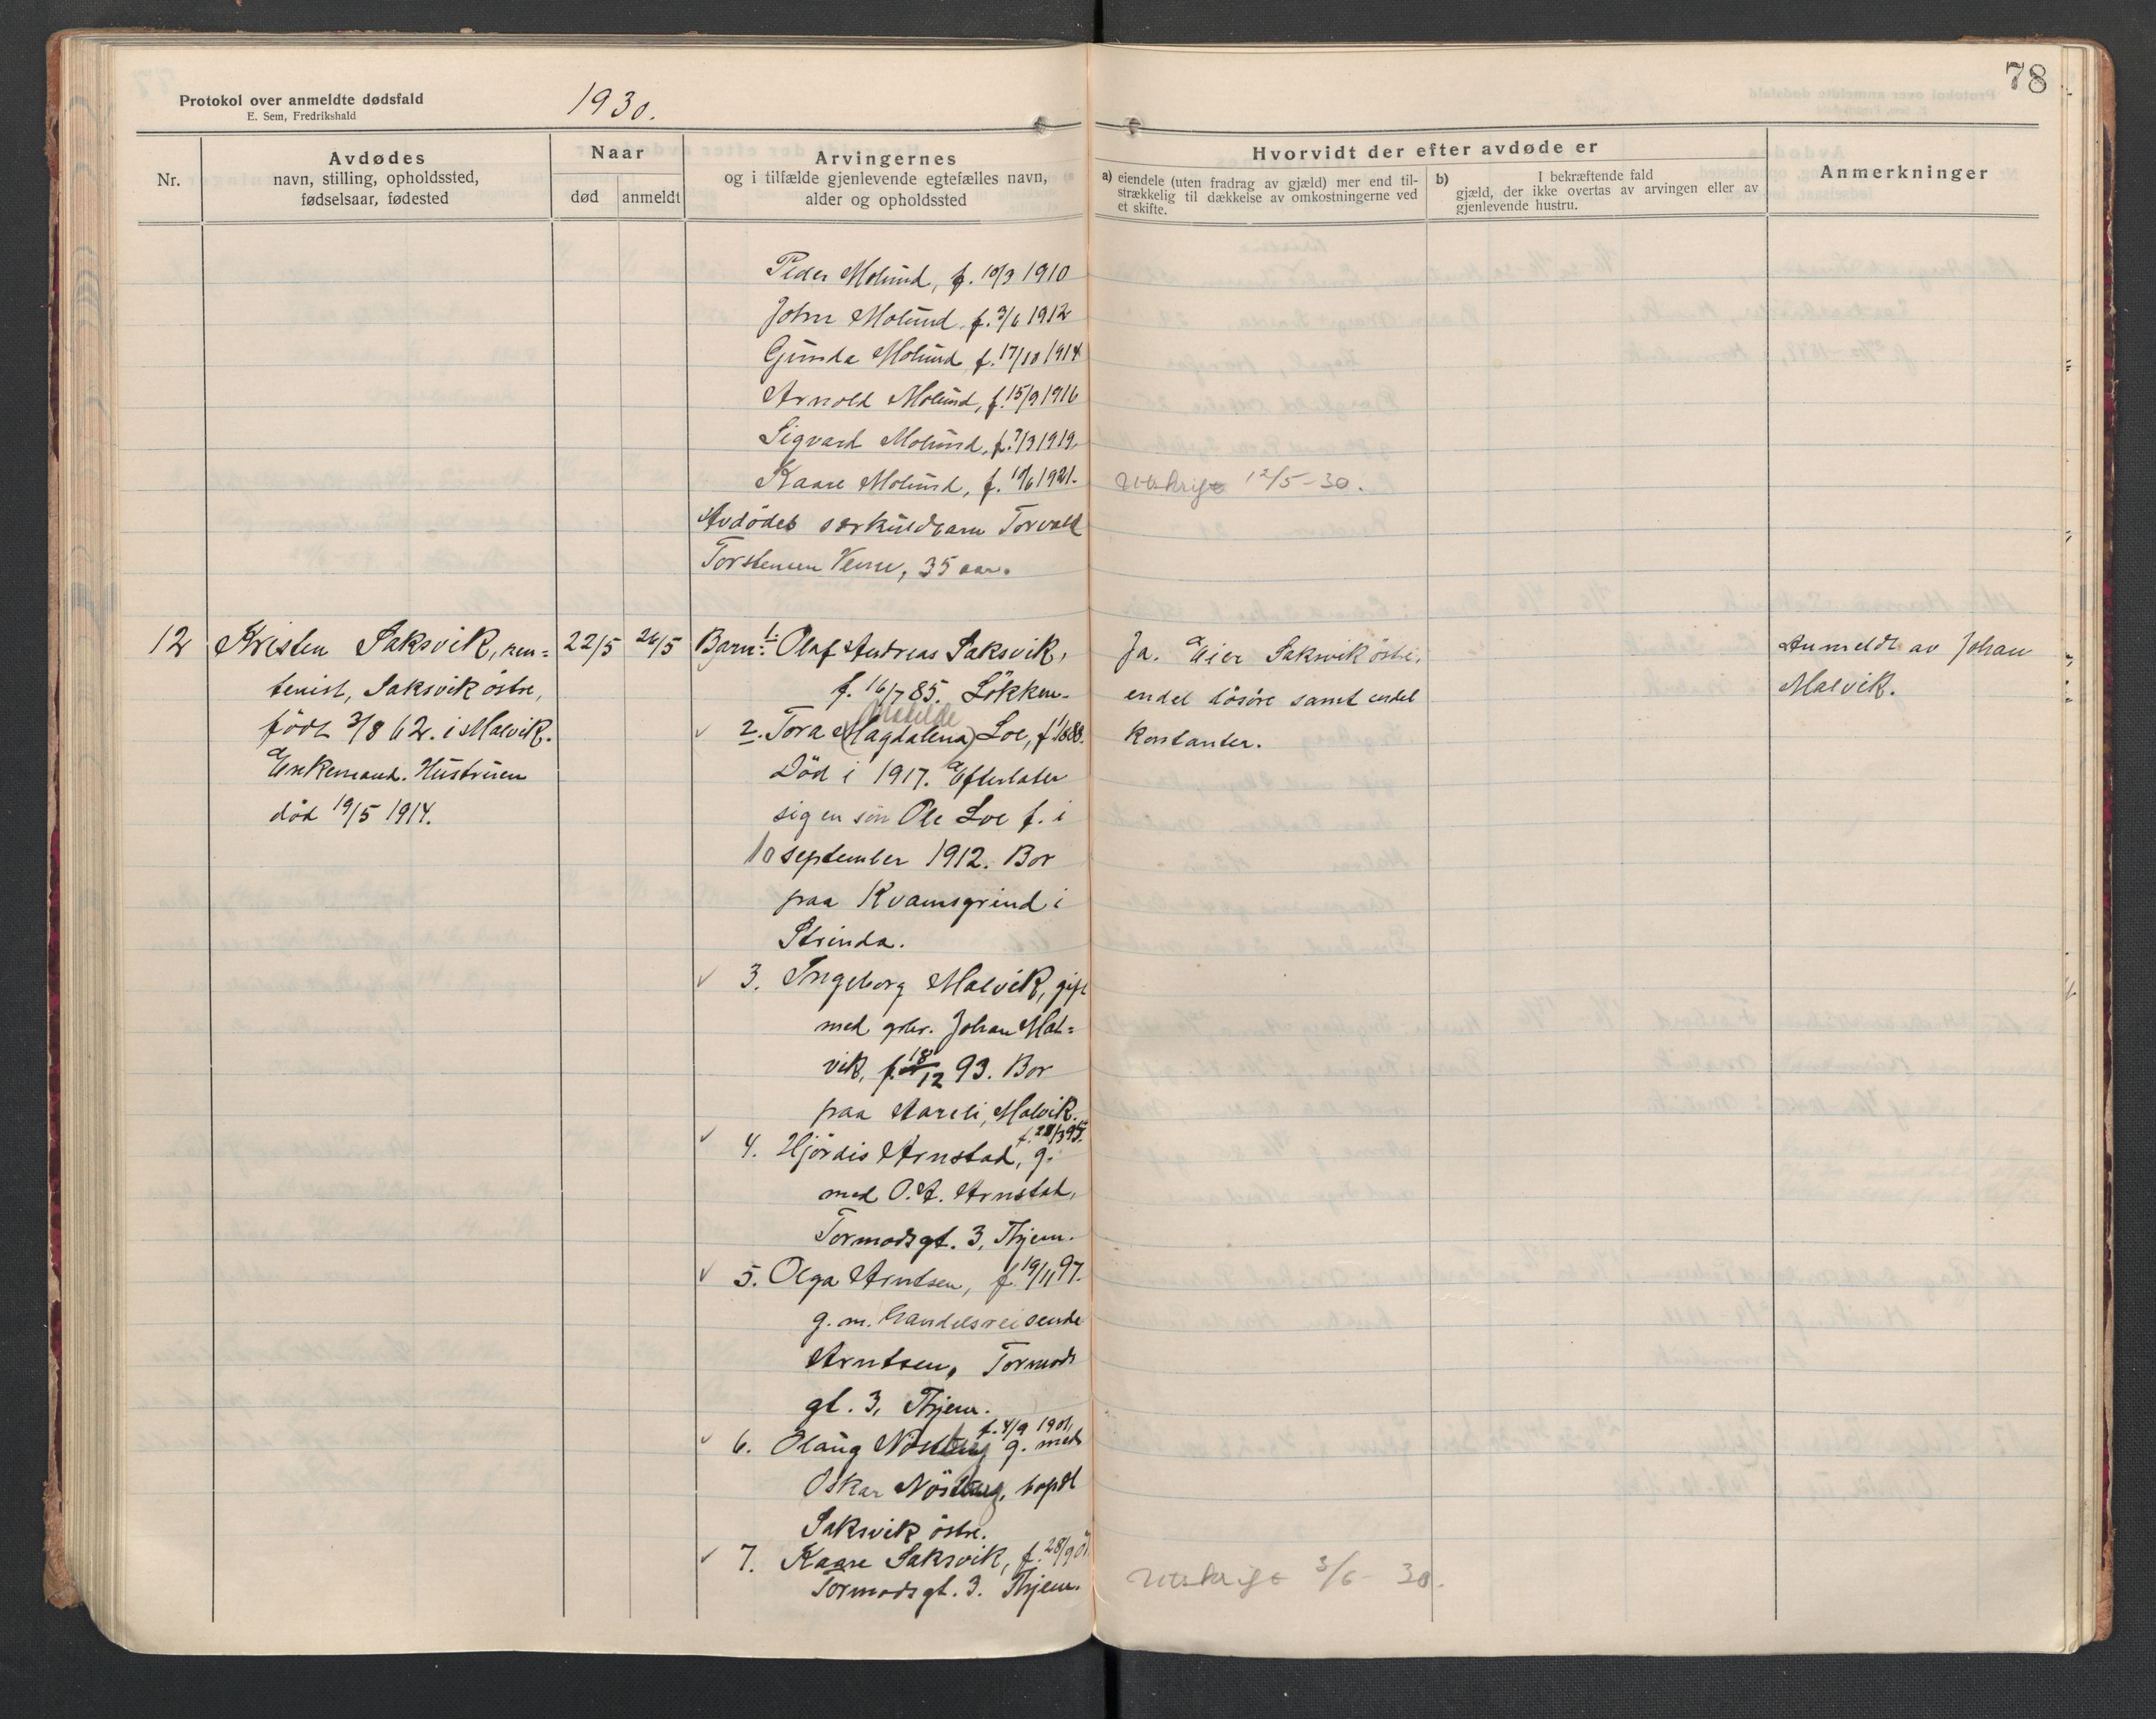 78
Protokol over anmeldte dødsfald
E. Sem, Fredrikshald
1930.
Nr.
Avdødes
navn, stilling, opholdssted,
fødselsaar, fødested
Naar
død
anmeldt
Arvingernes
og i tilfælde gjenlevende egtefælles navn,
alder og opholdssted
Hvorvidt der efter avdøde er
a) eiendele (uten fradrag av gjæld) mer end til-
strækkelig til dækkelse av omkostningerne ved
et skifte.
b) I bekræftende fald
gjæld, der ikke overtas av arvingen eller av
gjenlevende hustru.
Anmerkninger
Peder Molund, f. 10/3 1910
John Molund f. 3/6 1912
Gunda Molund f. 17/10 1914
Arnold Molund, f. 15/9 1916
Sigvard Molund, f. 7/3 1919.
Kaare Molund, f. 10/6 1921.
Utskrift 12/5-30.
Avdødes særkuldbarn Torvald
Torstensen 35 aar.
12
Kristen Saksvik, ren=
tenist, Saksvik östre,
født 3/8 62. i Malvik.
Enkemand. Hustruen
död 19/5 1914.
22/5
26/5
Barn: 1. Olaf Andreas Saksvik,
f. 16/7 85. Lökken.
Matilde
2. Tora (Magdalena) Loe, f. 1888.
Död i 1917. Efterlater
sig en sön Ole Loe f. i
10 september 1912. Bor
paa Kvamsgrind i
Strinda.
3. Ingeborg Malvik, gift
med grbr. Johan Mal=
vik, f. 18/12 93. Bor
paa Aareli, Malvik.
f. 28/3 95.
4. Hjördis Arnstad, g.
med O. A. Arnstad,
Tormodsgt. 3, Thjem.
5. Olga Arntsen, f. 19/11 97.
g. m. handelsreisende
Arntsen, Tormods
gt. 3, Thjem.
f. 4/9 1901,
6. Olaug g. med
Oskar bopæl
Saksvik östre.
7. Kaare Saksvik, f. 28/9
Tormodsgt. 3. Thjem.
Ja. Eier Saksvik östre,
endel lösöre samt endel
kontanter.
Utskrift 3/6-30.
Anmeldt av Johan
Malvik.